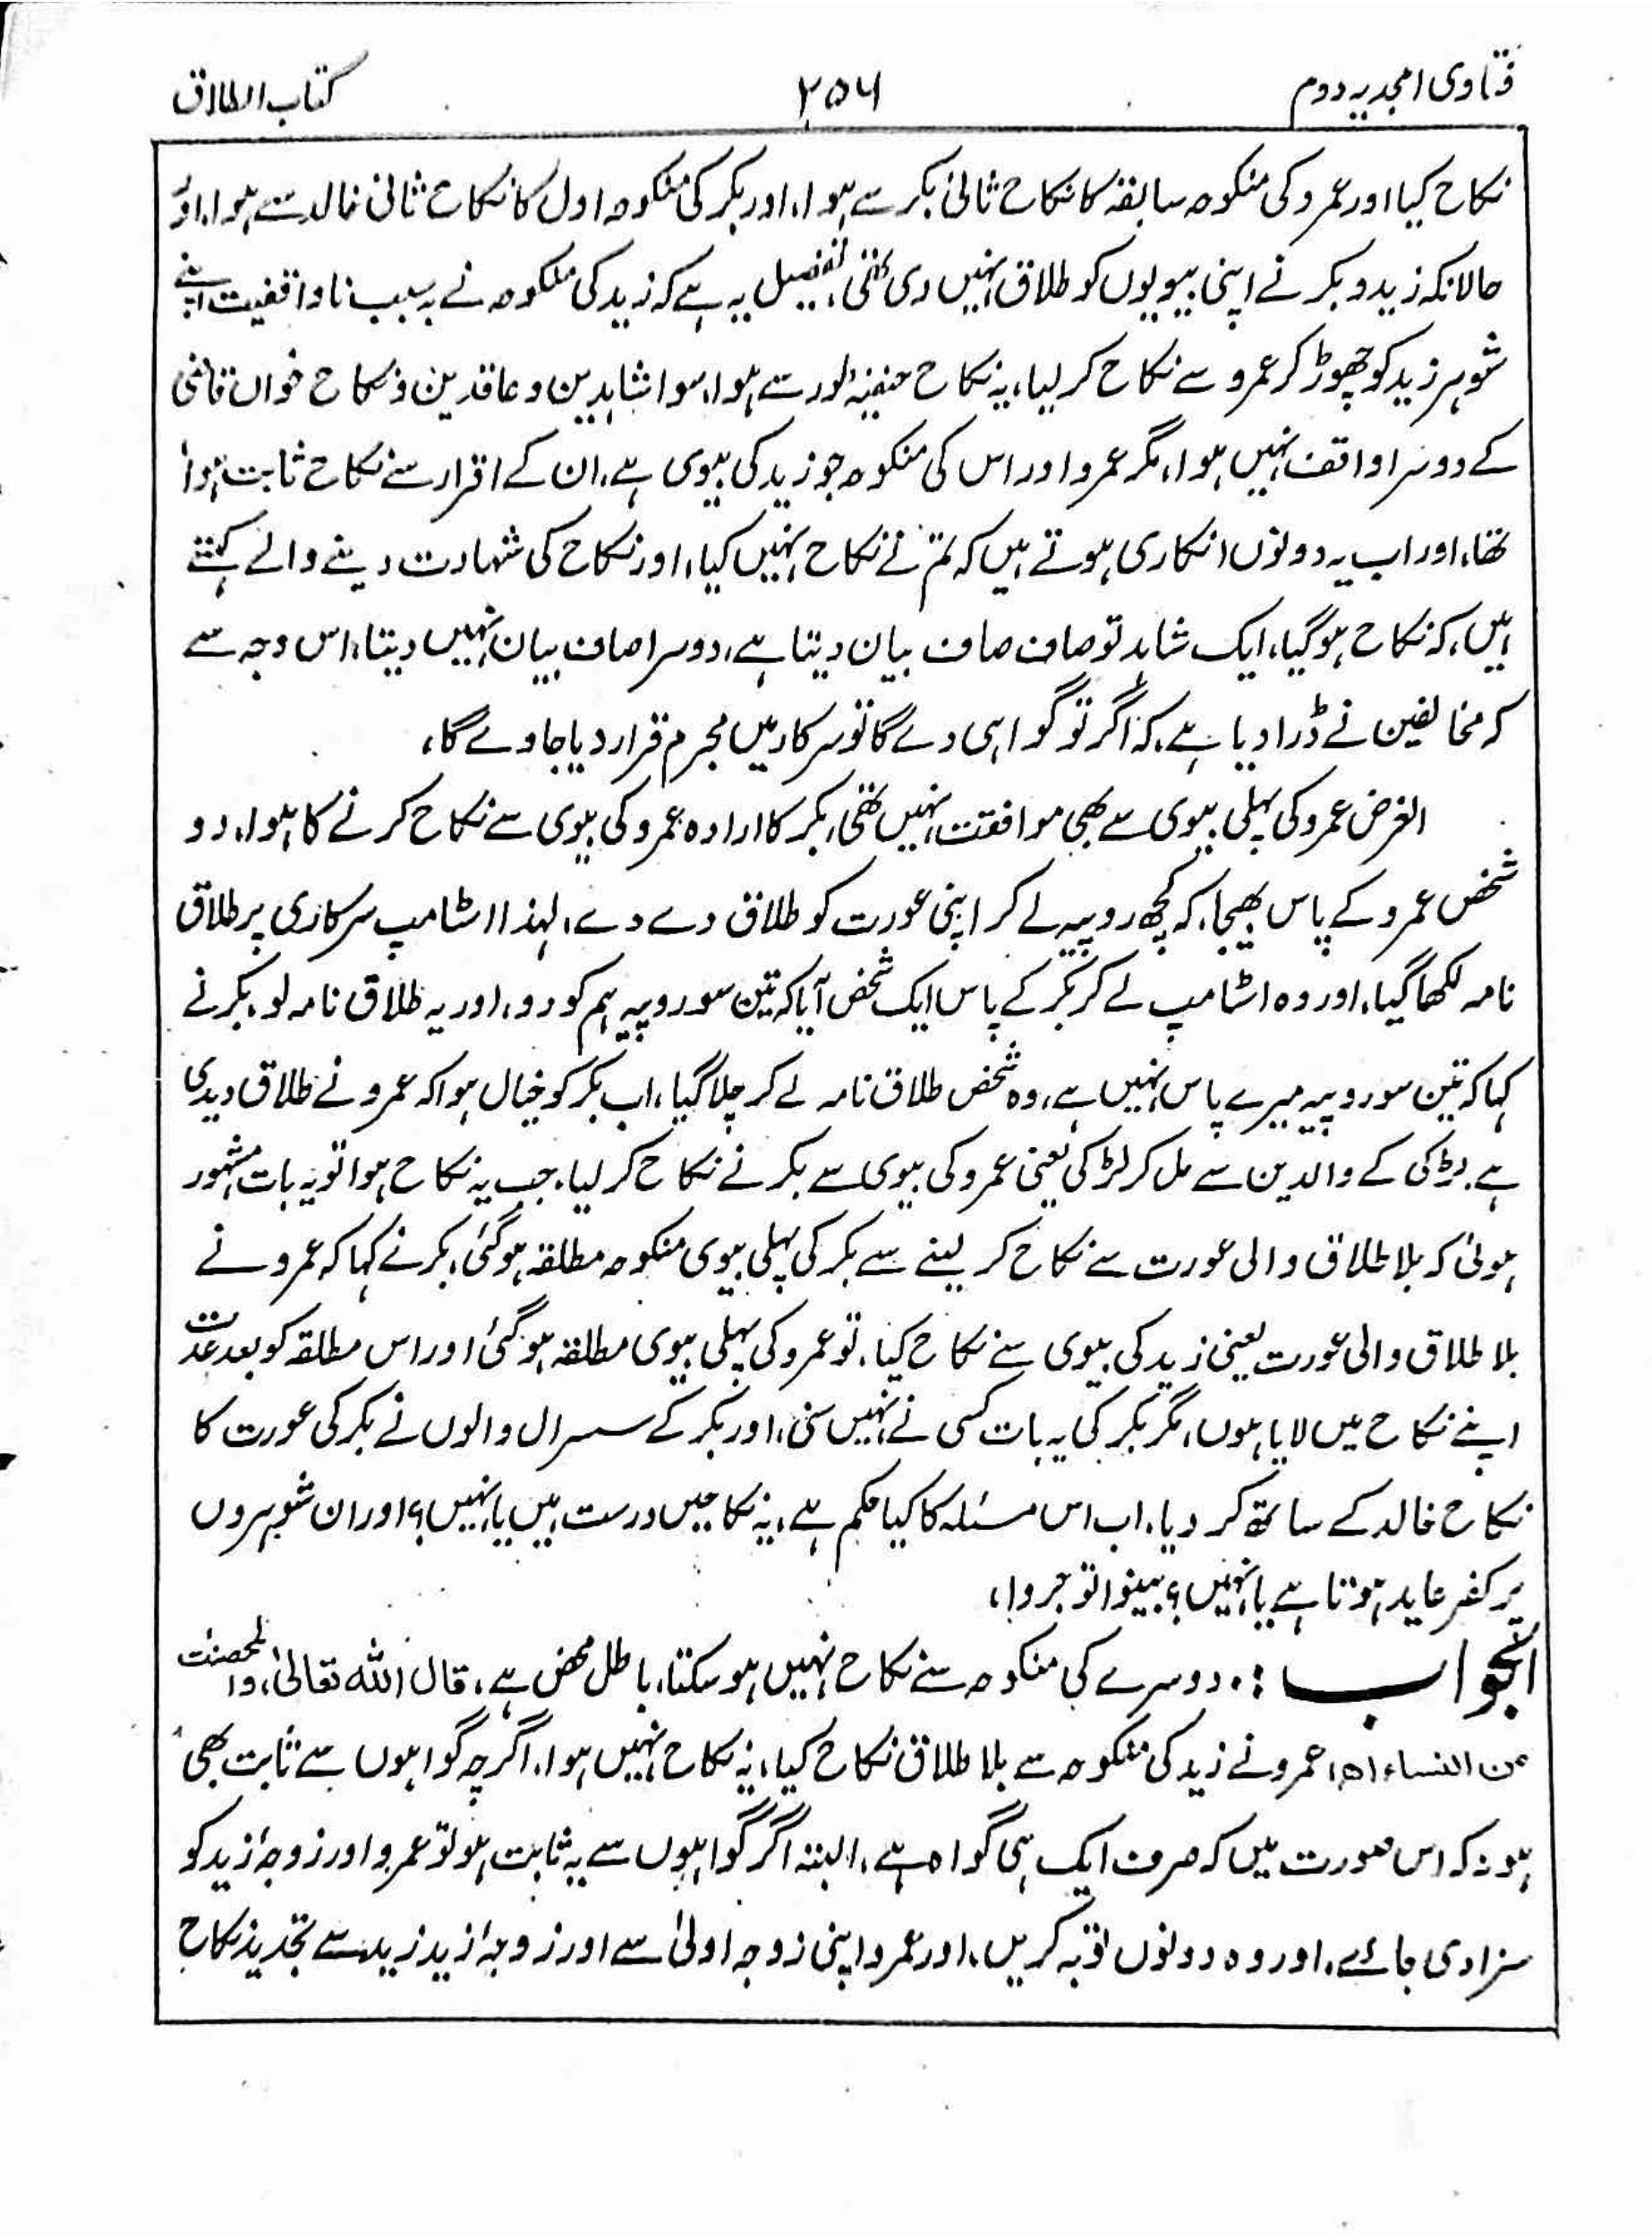 فتاوی امجدیہ دوم
۲۵۶
کتاب الطلاق
نکاح کیا اور عمرو کی منکوحہ سابقہ کا نکاح ثانی بکر سے ہوا، اور بکر کی منکوحہ اول کا نکاح ثانی خالد سے ہوا، اور
حالانکہ زید و بکر نے اپنی بیویوں کو طلاق نہیں دی تھی، تفصیل یہ ہے کہ زید کی منکوحہ نے بہ سبب ناواقفیت اپنے
شوہر زید کو چھوڑ کر عمرو سے نکاح کر لیا، یہ نکاح خفیہ طور سے ہوا، سوا شاہدین و عاقدین و نکاح خواں قاضی
کے دوسرا واقف نہیں ہوا، مگر عمرو اور اس کی منکوحہ جو زید کی بیوی ہے، ان کے اقرار سے نکاح ثابت ہوا
تھا، اور اب یہ دونوں انکاری ہوتے ہیں کہ ہم نے نکاح نہیں کیا، اور نکاح کی شہادت دینے والے کہتے
ہیں، کہ نکاح ہوگیا، ایک شاہد تو صاف صاف بیان دیتا ہے، دوسرا صاف بیان نہیں دیتا، اس وجہ سے
کہ مخالفین نے ڈرا دیا ہے، کہ اگر تو گواہی دے گا تو سرکار میں مجرم قرار دیا جاوے گا،
الغرض عمرو کی پہلی بیوی سے بھی موافقت نہیں تھی، بکر کا ارادہ عمرو کی بیوی سے نکاح کرنے کا ہوا، دو
شخص عمرو کے پاس بھیجا، کہ کچھ روپیہ لے کر اپنی عورت کو طلاق دے دے، لہذا اسٹامپ سرکاری پر طلاق
نامہ لکھا گیا، اور وہ اسٹامپ لے کر بکر کے پاس ایک شخص آیا کہ تین سو روپیہ ہم کو دو، اور یہ طلاق نامہ لو، بکر نے
کہا کہ تین سو روپیہ میرے پاس نہیں ہے، وہ شخص طلاق نامہ لے کر چلا گیا، اب بکر کو خیال ہوا کہ عمرو نے طلاق دیدی
ہے، لڑکی کے والدین سے مل کر لڑکی یعنی عمرو کی بیوی سے بکر نے نکاح کر لیا، جب یہ نکاح ہوا تو یہ بات مشہور
ہوئی کہ بلا طلاق والی عورت سے نکاح کر لینے سے بکر کی پہلی بیوی منکوحہ مطلقہ ہو گئی، بکر نے کہا کہ عمرو نے
بلا طلاق والی عورت یعنی زید کی بیوی سے نکاح کیا، تو عمرو کی پہلی بیوی مطلقہ ہو گئی اور اس مطلقہ کو بعد عدت
اپنے نکاح میں لایا ہوں، مگر بکر کی یہ بات کسی نے نہیں سنی، اور بکر کے سسرال والوں نے بکر کی عورت کا
نکاح خالد کے ساتھ کر دیا، اب اس مسئلہ کا کیا حکم ہے، یہ نکاحیں درست ہیں یا نہیں؟ اور ان شوہروں
پر کفر عاید ہوتا ہے یا نہیں؟ بینوا توجروا،
الجواب :۔ دوسرے کی منکوحہ سے نکاح نہیں ہو سکتا، باطل محض ہے، قال اللہ تعالیٰ، والمحصنت
من النساء اھ، عمرو نے زید کی منکوحہ سے بلا طلاق نکاح کیا، یہ نکاح نہیں ہوا، اگرچہ گواہوں سے ثابت بھی
ہو نہ کہ اس صورت میں کہ صرف ایک ہی گواہ ہے، البتہ اگر گواہوں سے یہ ثابت ہو تو عمرو اور زوجۂ زید کو
سزا دی جائے، اور وہ دونوں توبہ کریں، اور عمرو اپنی زوجہ اولیٰ سے اور زوجۂ زید زید سے تجدید نکاح